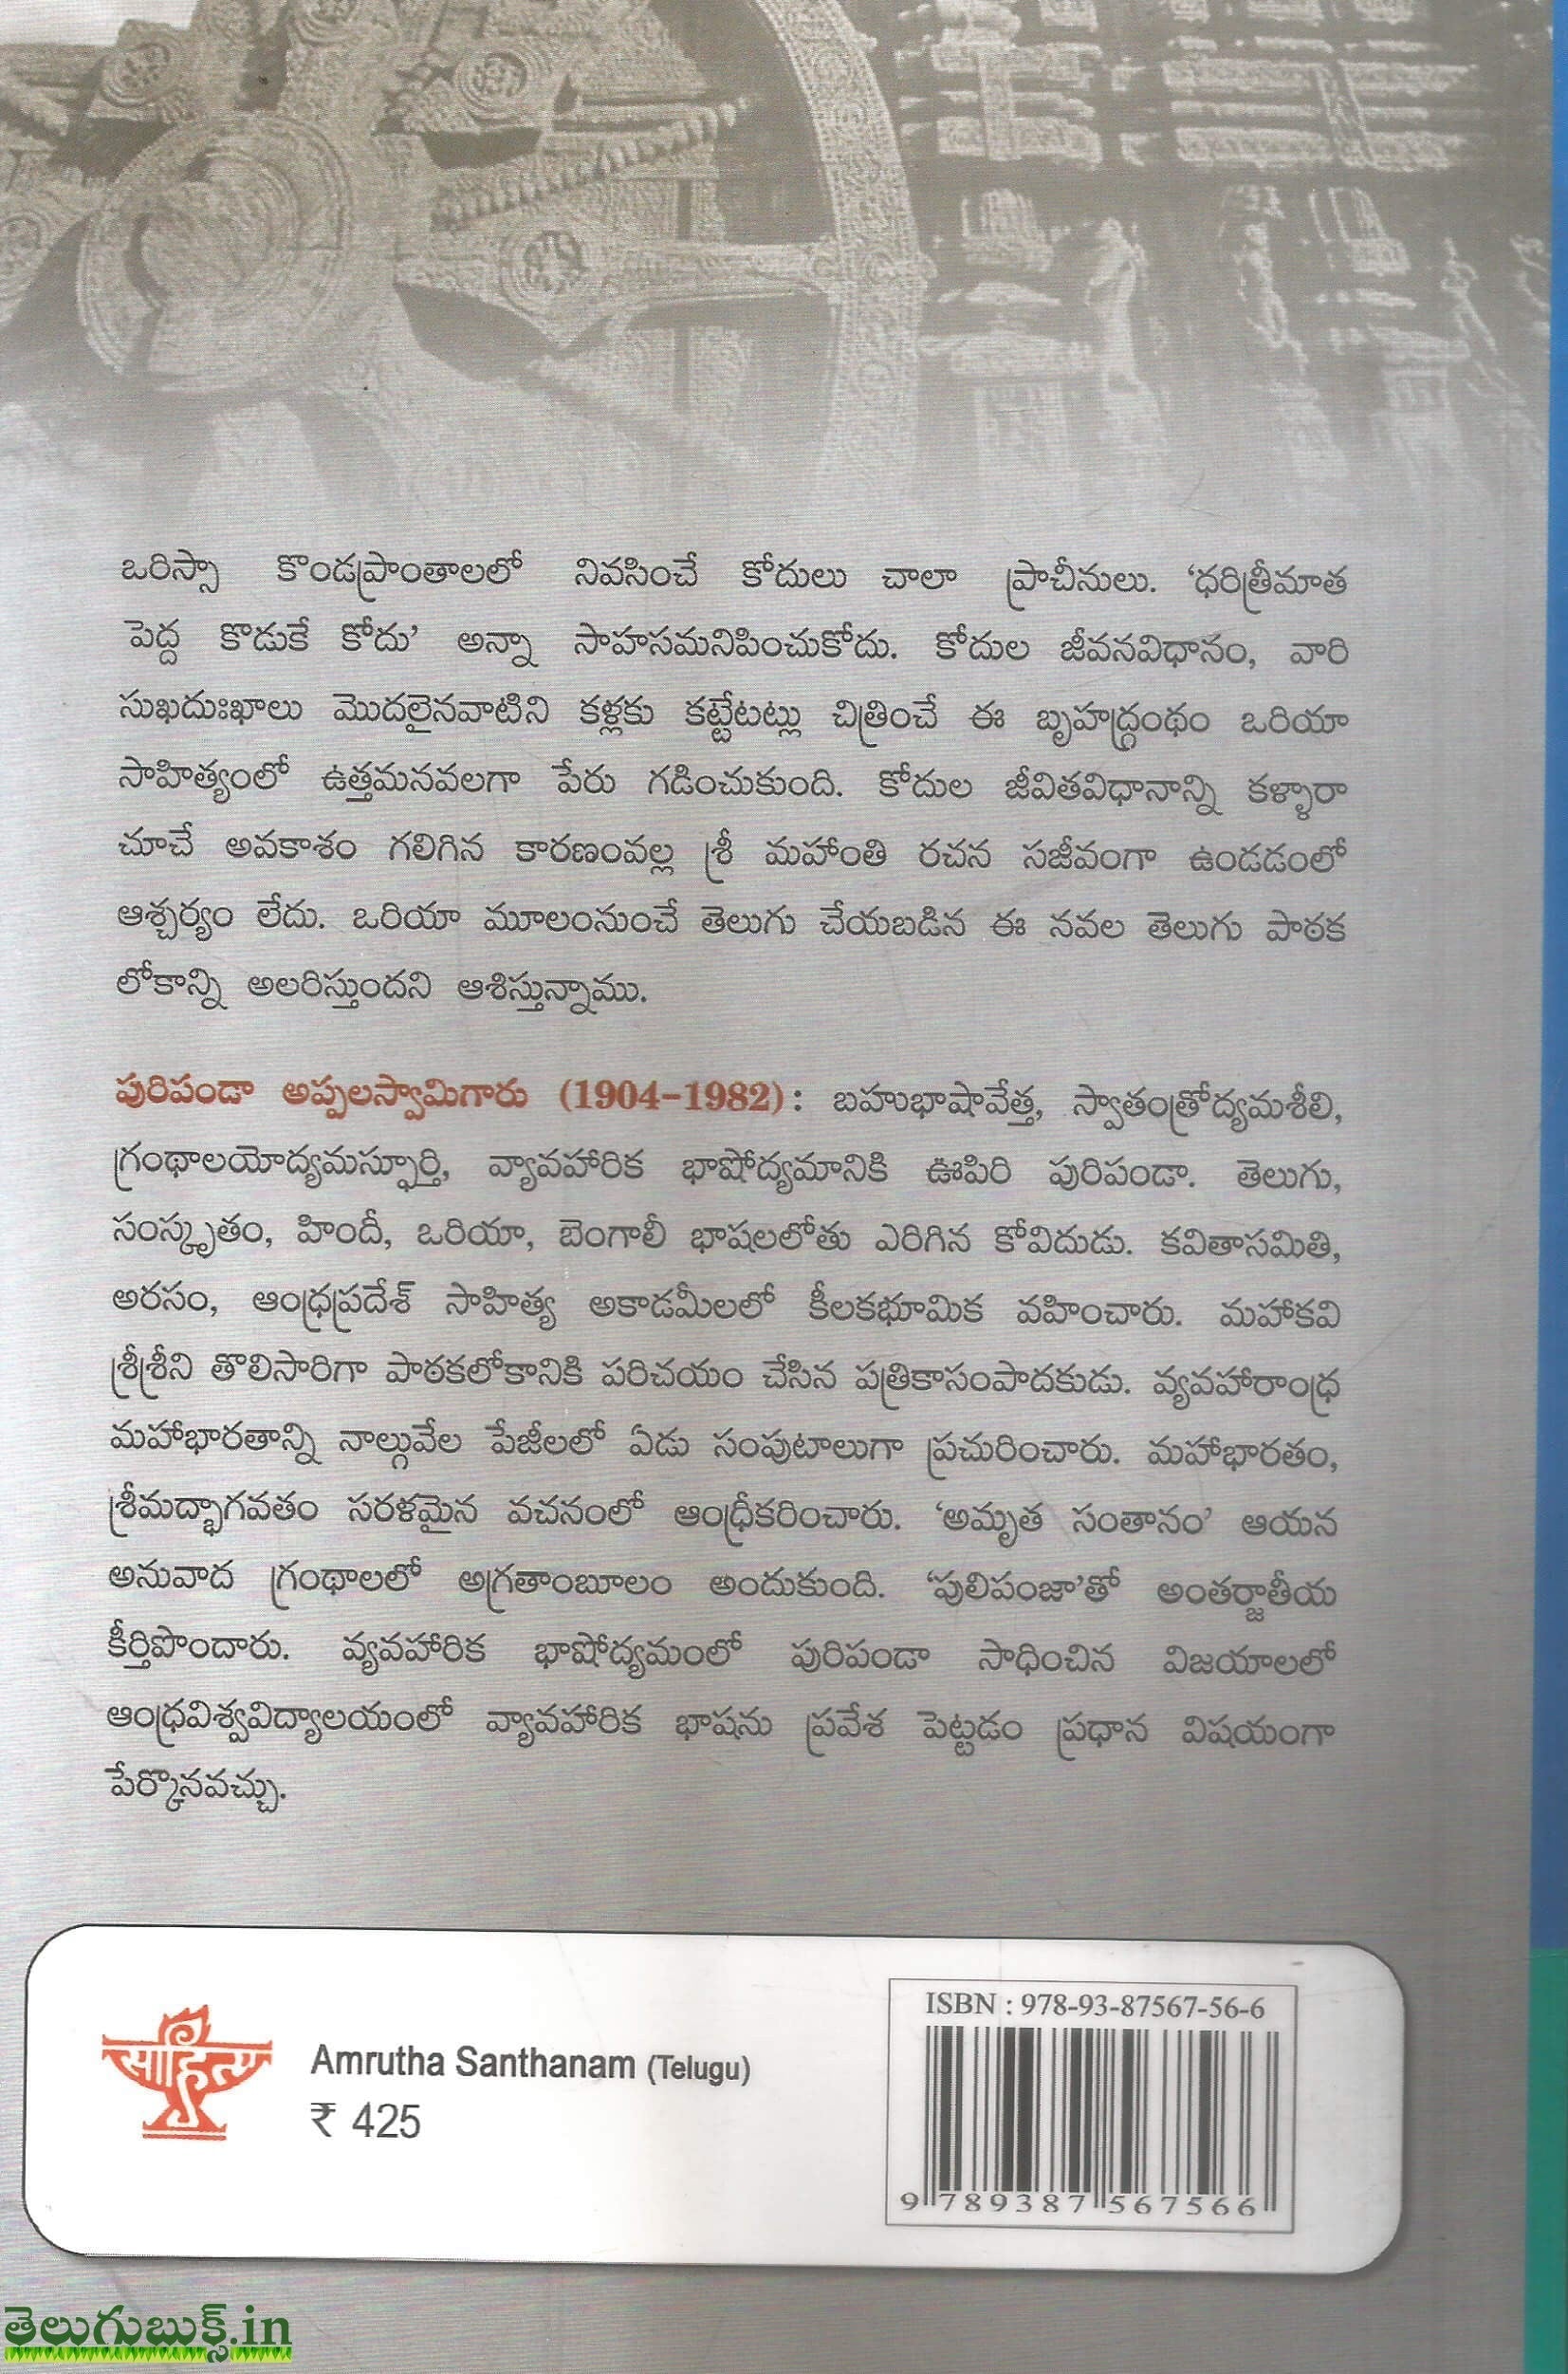 ఒరిస్సా కొండప్రాంతాలలో నివసించే కోదులు చాలా ప్రాచీనులు. ‘ధరిత్రీమాత
పెద్ద కొడుకే కోదు’ అన్నా సాహసమనిపించుకోదు. కోదుల జీవనవిధానం, వారి
సుఖదుఃఖాలు మొదలైనవాటిని కళ్లకు కట్టేటట్లు చిత్రించే ఈ బృహద్గ్రంథం ఒరియా
సాహిత్యంలో ఉత్తమనవలగా పేరు గడించుకుంది. కోదుల జీవితవిధానాన్ని కళ్ళారా
చూచే అవకాశం గలిగిన కారణంవల్ల శ్రీ మహాంతి రచన సజీవంగా ఉండడంలో
ఆశ్చర్యం లేదు. ఒరియా మూలంనుంచే తెలుగు చేయబడిన ఈ నవల తెలుగు పాఠక
లోకాన్ని అలరిస్తుందని ఆశిస్తున్నాము.
పురిపండా అప్పలస్వామిగారు (1904-1982): బహుభాషావేత్త, స్వాతంత్రోద్యమశీలి,
గ్రంథాలయోద్యమస్ఫూర్తి, వ్యావహారిక భాషోద్యమానికి ఊపిరి పురిపండా. తెలుగు,
సంస్కృతం, హిందీ, ఒరియా, బెంగాలీ భాషలలోతు ఎరిగిన కోవిదుడు. కవితాసమితి,
అరసం, ఆంధ్రప్రదేశ్ సాహిత్య అకాడమీలలో కీలకభూమిక వహించారు. మహాకవి
శ్రీశ్రీని తొలిసారిగా పాఠకలోకానికి పరిచయం చేసిన పత్రికాసంపాదకుడు. వ్యవహారాంధ్ర
మహాభారతాన్ని నాల్గువేల పేజీలలో ఏడు సంపుటాలుగా ప్రచురించారు. మహాభారతం,
శ్రీమద్భాగవతం సరళమైన వచనంలో ఆంధ్రీకరించారు. ‘అమృత సంతానం’ ఆయన
అనువాద గ్రంథాలలో అగ్రతాంబూలం అందుకుంది. ‘పులిపంజా’తో అంతర్జాతీయ
కీర్తిపొందారు. వ్యవహారిక భాషోద్యమంలో పురిపండా సాధించిన విజయాలలో
ఆంధ్రవిశ్వవిద్యాలయంలో వ్యావహారిక భాషను ప్రవేశ పెట్టడం ప్రధాన విషయంగా
పేర్కొనవచ్చు.
साहित्य
Amrutha Santhanam (Telugu)
₹ 425
ISBN : 978-93-87567-56-6
9 789387 567566
తెలుగుబుక్స్.in